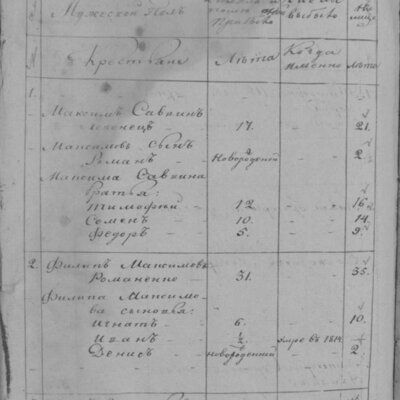 Мужескій Полъ
№ Крестьяне Лѣта Когда именно Лѣта
1.
Максимъ Савкинъ
17. 21.
Максимовъ сынъ
Романъ Новорожденный 2
Максима Савкина
братья:
Тимофѣй 12 16
Семенъ 10. 14.
Федоръ 5. 9.
2. Филипъ Максимовъ
Романенко 31. 35.
Филипа Максимо-
ва сыновья:
Игнатъ 6. 10.
Иванъ ½ умре въ 1814.
Денисъ новорожденный 2